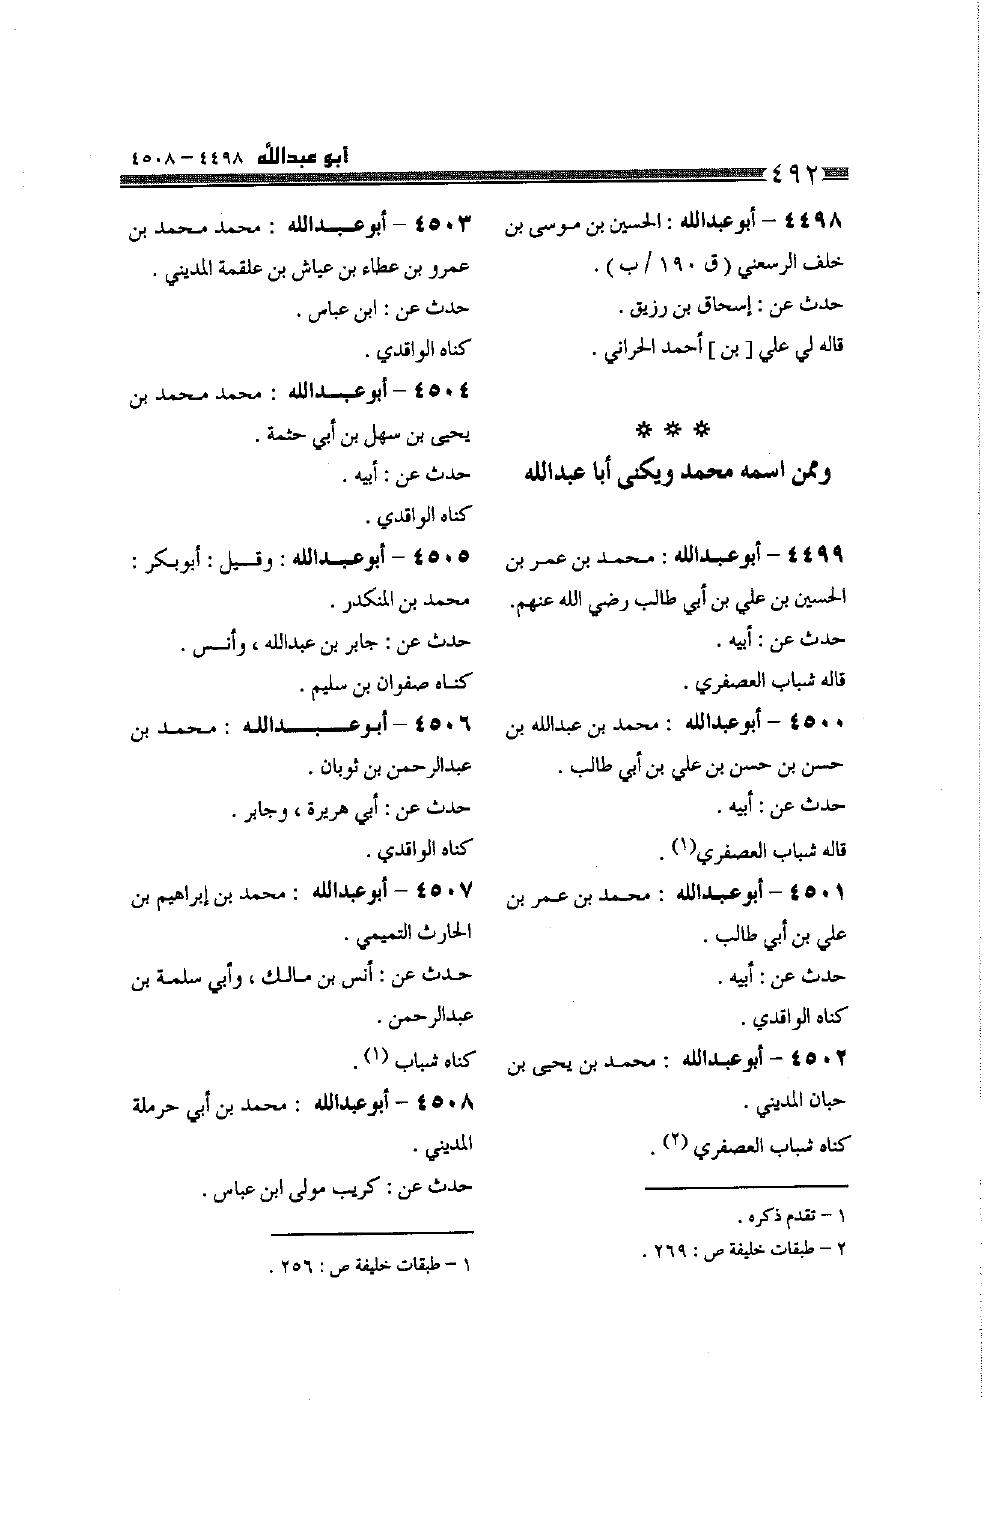 أبو عبدالله ٤٤٩٨ – ٤٥٠٨
٤٩٢
٤٤٩٨ – أبو عبدالله : الحسين بن موسى بن
خلف الرسعني ( ق ١٩٠ / ب ) .
حدث عن : إسحاق بن رزيق .
قاله لي علي [ بن ] أحمد الحراني .
* * *
وممن اسمه محمد ويكنى أبا عبدالله
٤٤٩٩ – أبو عبدالله : محمد بن عمر بن
الحسين بن علي بن أبي طالب رضي الله عنهم.
حدث عن : أبيه .
قاله شباب العصفري .
٤٥٠٠ – أبو عبدالله : محمد بن عبدالله بن
حسن بن حسن بن علي بن أبي طالب .
حدث عن : أبيه .
قاله شباب العصفري(١) .
٤٥٠١ – أبو عبدالله : محمد بن عمر بن
علي بن أبي طالب .
حدث عن : أبيه .
كناه الواقدي .
٤٥٠٢ – أبو عبدالله : محمد بن يحيى بن
حبان المديني .
كناه شباب العصفري (٢) .
١ – تقدم ذكره .
٢ – طبقات خليفة ص : ٢٦٩ .
٤٥٠٣ – أبو عبدالله : محمد محمد بن
عمرو بن عطاء بن عياش بن علقمة المديني .
حدث عن : ابن عباس .
كناه الواقدي .
٤٥٠٤ – أبو عبدالله : محمد محمد بن
يحيى بن سهل بن أبي حثمة .
حدث عن : أبيه .
كناه الواقدي .
٤٥٠٥ – أبو عبدالله : وقيل : أبوبكر :
محمد بن المنكدر .
حدث عن : جابر بن عبدالله ، وأنس .
كناه صفوان بن سليم .
٤٥٠٦ – أبو عبدالله : محمد بن
عبدالرحمن بن ثوبان .
حدث عن : أبي هريرة ، وجابر .
كناه الواقدي .
٤٥٠٧ – أبو عبدالله : محمد بن إبراهيم بن
الحارث التميمي .
حدث عن : أنس بن مالك ، وأبي سلمة بن
عبدالرحمن .
كناه شباب (١).
٤٥٠٨ – أبو عبدالله : محمد بن أبي حرملة
المديني .
حدث عن : كريب مولى ابن عباس .
١ – طبقات خليفة ص : ٢٥٦ .